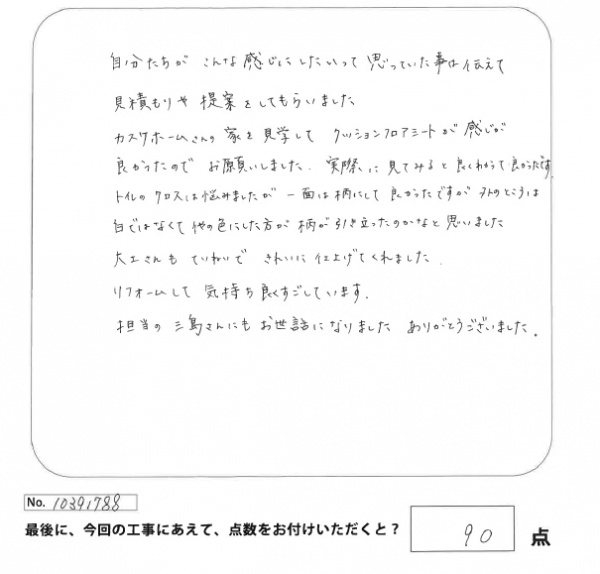 自分たちが こんな感じにしたいって 思っていた事は伝えて
見積もりや 提案をしてもらいました
カスケホームさんの 家を見学して クッションフロアシートが 感じが
良かったので お願いしました. 実際に見てみると良くわかって良かったです.
トイレの クロスは悩みましたが 一面は柄にして 良かったですが 外のところは
白ではなくて 他の色にした方が 柄が引き立ったのかなと 思いました
大工さんも ていねいで きれいに仕上げてくれました.
リフォームして 気持ち良くすごしています.
担当の 三島さんにも お世話になりました ありがとうございました.
No. 10391788
最後に、今回の工事にあえて、点数をお付けいただくと? 90 点